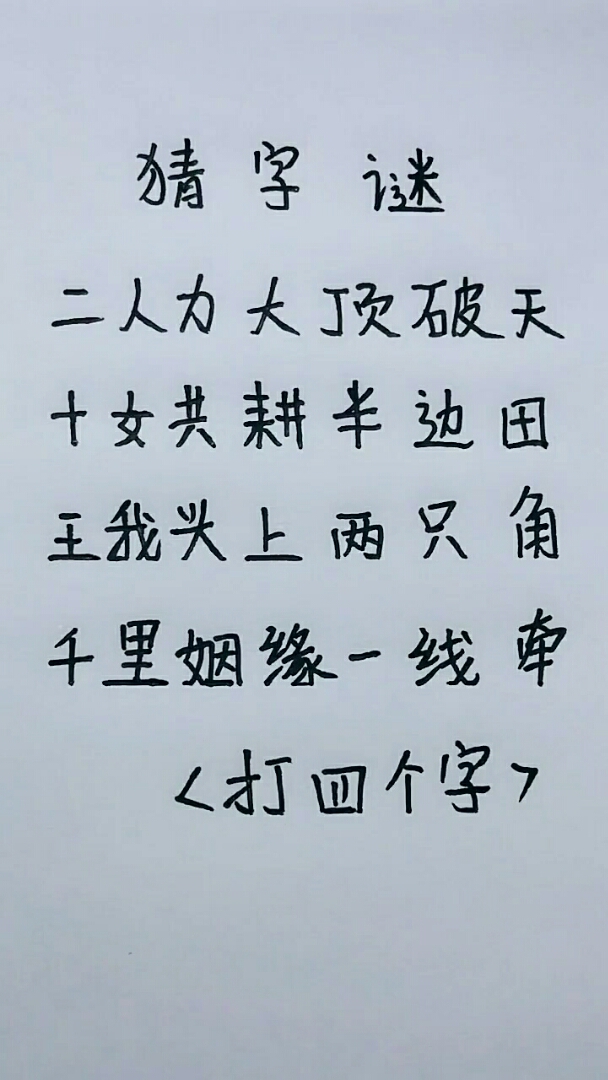 猜字谜
二人力大顶破天
十女共耕半边田
王我头上两只角
千里姻缘一线牵
<打四个字>